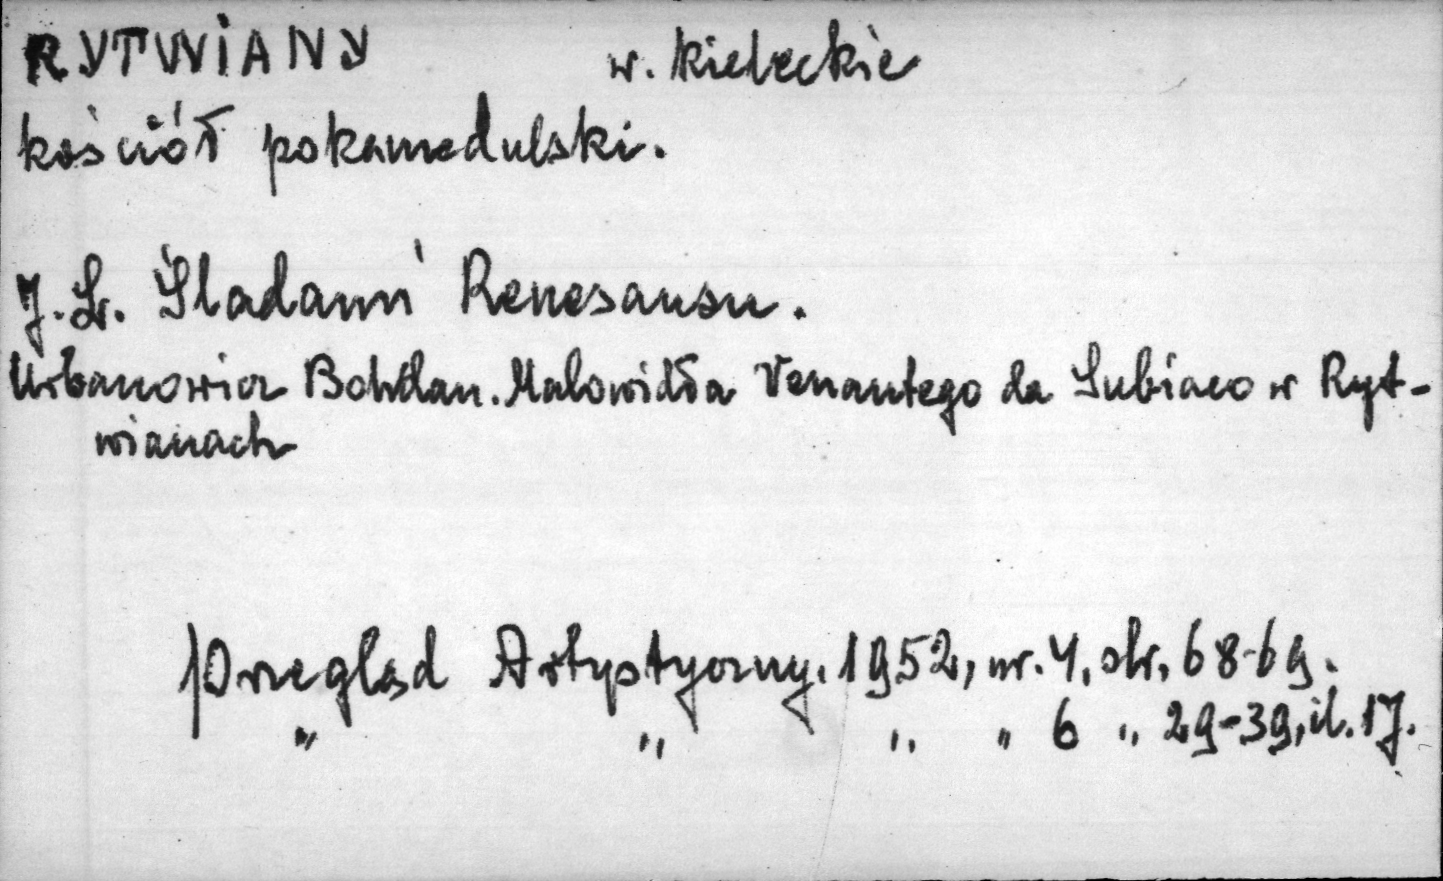 RYTWIANY w. kieleckie
kościół pokamedulski.
J. Lr. Śladami Renesansu.
Urbanowicz Bohdan. Malowidła Venantego da Subiaco w Ryt-
wianach
Przegląd Artystyczny. 1952, nr. 4, str. 68-69.
" " " " 6 " 29-39, il. 17.